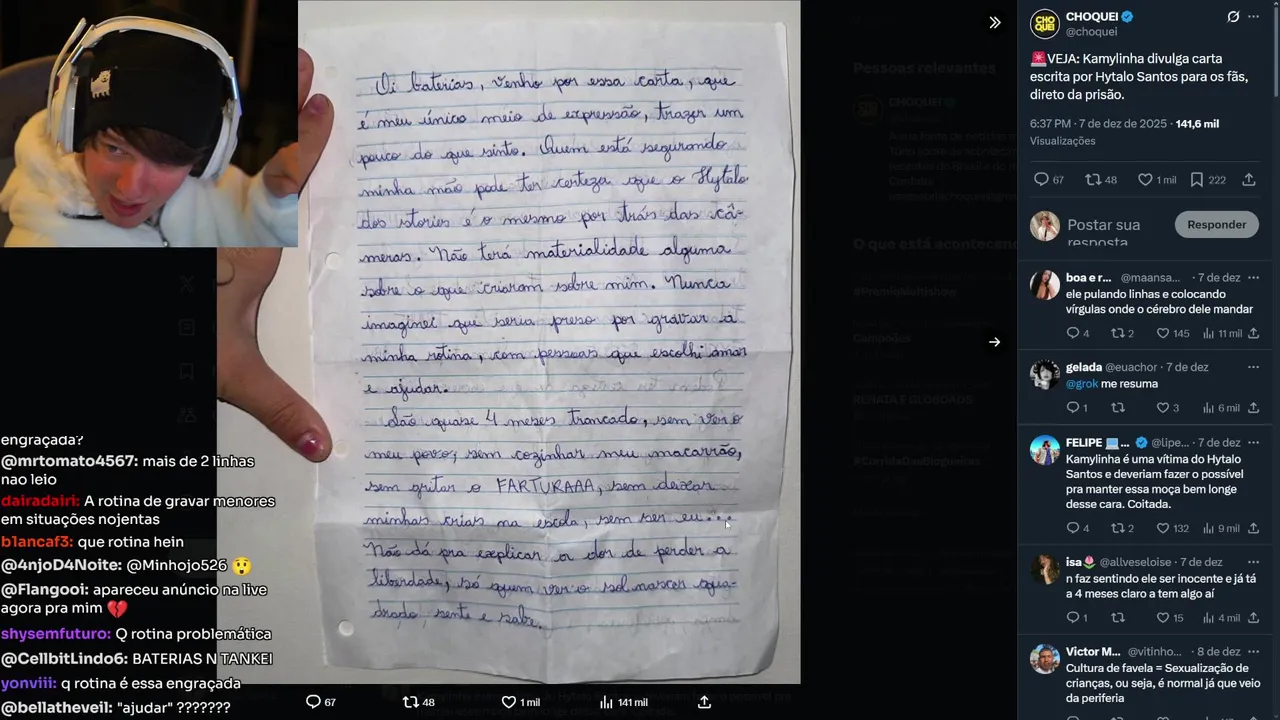 Oi baterias, venho por essa carta, que
é meu único meio de expressão, trazer um
pouco do que sinto. Quem está segurando
minha mão pode ter certeza que o Hytalo
dos stories é o mesmo por trás das câ-
meras. Não terá materialidade alguma
sobre o que criaram sobre mim. Nunca
imaginei que seria preso por gravar a
minha rotina, com pessoas que escolhi amar
e ajudar.
São quase 4 meses trancado, sem ver o
meu povo, sem cozinhar meu macarrão,
sem gritar o FARTURAAA, sem deixar
minhas crias na escola, sem ser eu...
Não dá pra explicar a dor de perder a
liberdade, só quem ver o sol nascer qua-
drado, sente e sabe.
67
48
1 mil
141 mil
engraçada?
@mrtomato4567: mais de 2 linhas
nao leio
dairadairi: A rotina de gravar menores
em situações nojentas
b1ancaf3: que rotina hein
@4njoD4Noite: @Minhojo526 😲
@Flangooi: apareceu anúncio na live
agora pra mim 💔
shysemfuturo: Q rotina problemática
@CellbitLindo6: BATERIAS N TANKEI
yonviii: q rotina é essa engraçada
@bellatheveil: "ajudar" ???????
Pessoas relevantes
CHOQUEI
O que está acontecendo
#PremioMultishow
CHO
QUEI
CHOQUEI
@choquei
🚨VEJA: Kamylinha divulga carta
escrita por Hytalo Santos para os fãs,
direto da prisão.
6:37 PM · 7 de dez de 2025 · 141,6 mil
Visualizações
67
48
1 mil
222
Postar sua
resposta
Responder
boa e r... @maansa... · 7 de dez
ele pulando linhas e colocando
vírgulas onde o cérebro dele mandar
4
2
145
11 mil
gelada @euachor · 7 de dez
@grok me resuma
1
3
6 mil
FELIPE 💻 ... @lipe... · 7 de dez
Kamylinha é uma vítima do Hytalo
Santos e deveriam fazer o possível
pra manter essa moça bem longe
desse cara. Coitada.
4
2
132
9 mil
isa🌷 @allveseloise · 7 de dez
n faz sentindo ele ser inocente e já tá
a 4 meses claro a tem algo aí
1
15
4 mil
Victor M... @vitinho... · 8 de dez
Cultura de favela = Sexualização de
crianças, ou seja, é normal já que veio
da periferia